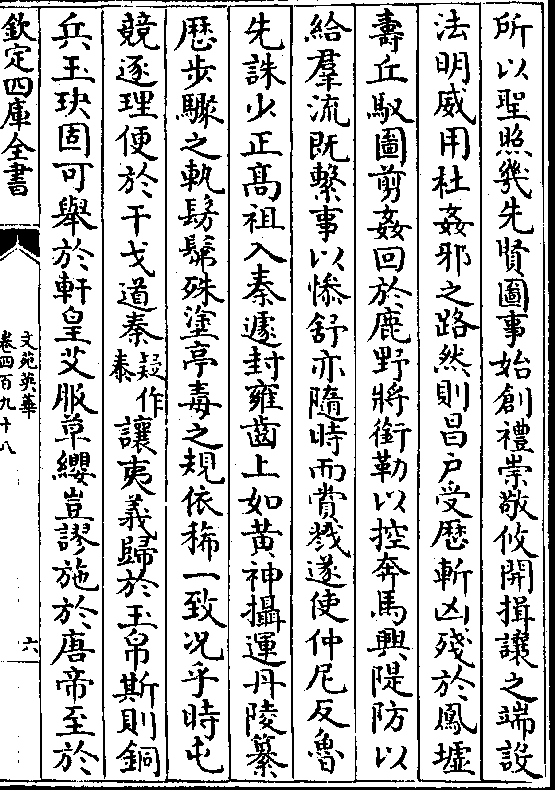 所以聖照幾先賢圖事始創禮崇敬攸開揖讓之端設
法明威用杜姦邪之路然則昌户受歴斬凶殘於鳳墟
壽丘馭圖剪姦回於鹿野將銜勒以控奔馬興隄防以
給羣流既繫事以慘舒亦隨時而賞戮遂使仲尼反魯
先誅少正髙祖入秦遽封雍齒上如黄神攝運丹陵纂
歴步驟之軌髣髴殊塗亭毒之規依稀一致况乎時屯
競逐理便於干戈道秦疑作泰讓夷義歸於玉帛斯則銅
兵玉玦固可舉於軒皇艾服草纓豈謬施於唐帝至於
欽定四庫全書
文苑英華
卷四百九十八
六